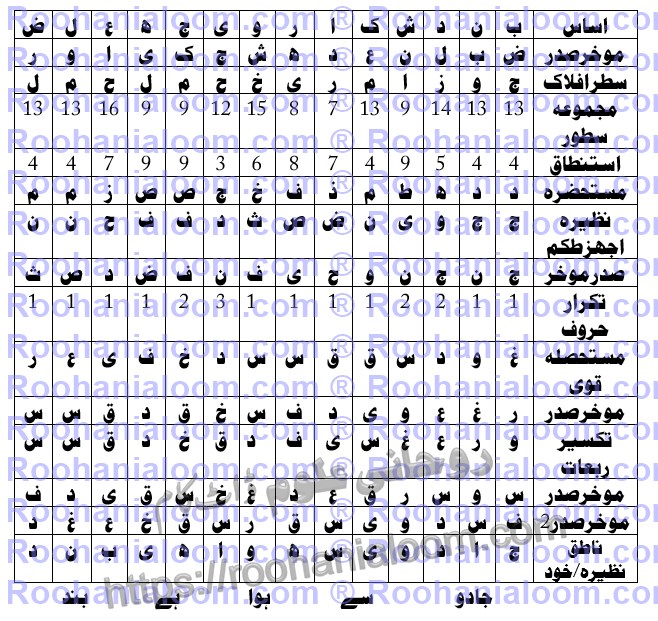 اساس ب ن د ش ک ا ر و ی ج ھ ع ل ض
موخرصدر ض ب ل ن ع د ھ ش ج ک ی ا و ر
سطرافلاک ج و ز ا م ر ی خ ح م ل ح م ل
مجموعہ 13 13 14 9 13 7 8 15 12 9 9 16 13 13
سطور
استنطاق 4 4 5 9 4 7 8 6 3 9 9 7 4 4
مستحضرہ د د ھ ط م ذ ف خ ج ص ص ز م م
نظیرہ ج ج و ی ن ض ص ث د ف ف ح ن ن
اجھزطکم
صدرموخر ج ن ج ن و ح ی ف ن ف ض د ص ث
تکرار 1 1 2 2 1 1 1 1 3 2 1 1 1 1
حروف
مستحصلہ غ و د س ق ق س س د خ ف ی ع ر
قوی
موخرصدر ر غ ع و ی د ف س خ ق د ق س س
تکسیر و ر ع غ س ی ف د ق خ د ق س س
ربعات
موخرصدر س و س ر ق ع د غ خ س ق ی د ف
موخرصدر2 ف س د و ی س ق ر س ق خ ع غ د
ناطق ج ا د و ی س ھ و ا ھ ی ب ن د
نظیرہ/خود
جادو سے ہوا ہے بند
روحانی علوم ڈاٹ کام
https://roohanialoom.com
Roohanialoom.com ® Roohanialoom.com